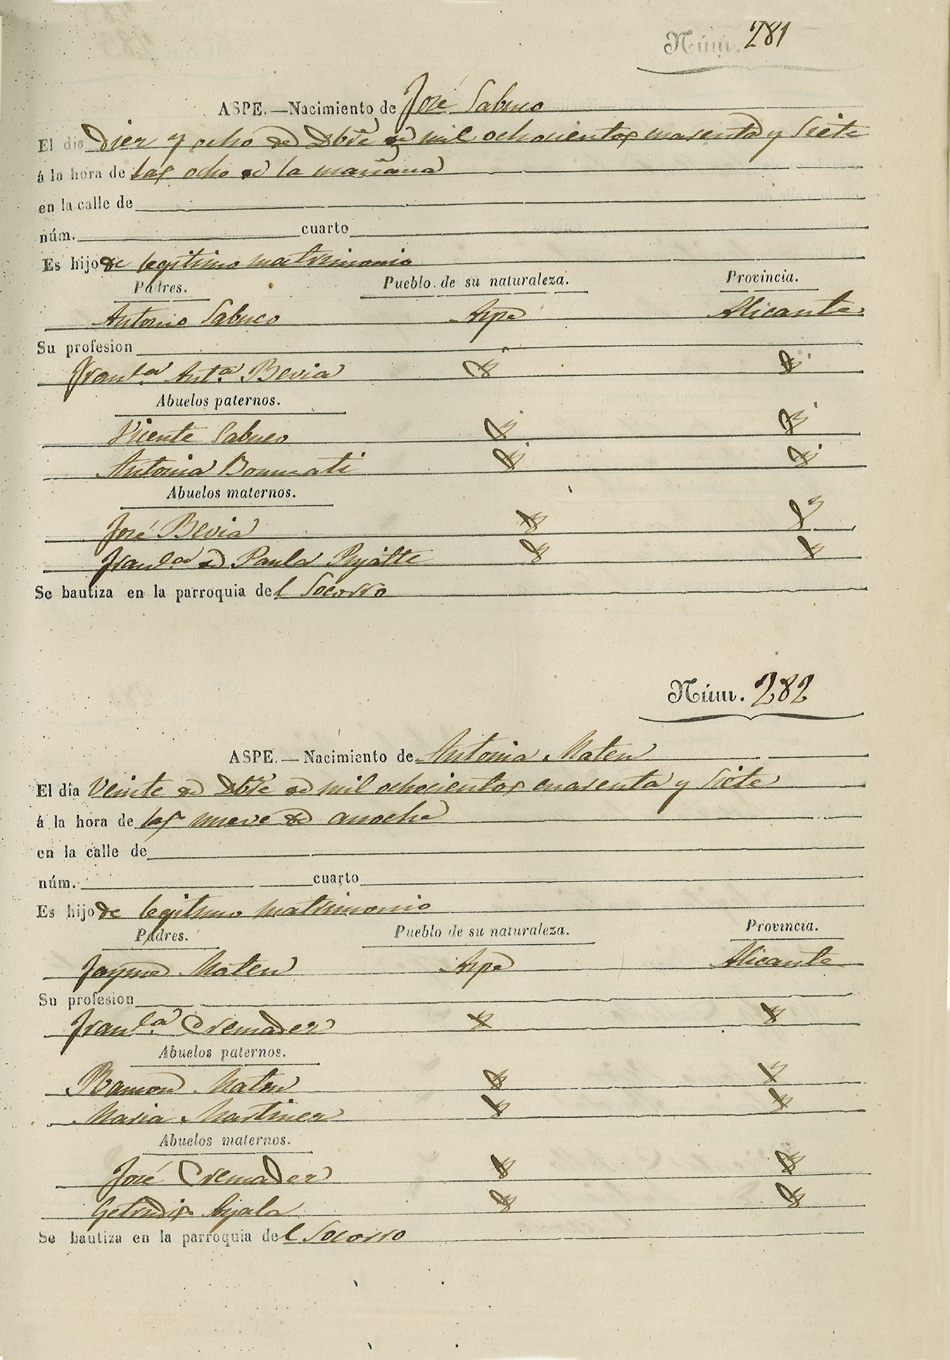 Núm. 281
ASPE.—Nacimiento de José Sabuco
El día Diez y ocho de Dbre de mil ochocientos cuarenta y siete
á la hora de las ocho de la mañana
en la calle de
núm. cuarto
Es hijo de legitimo matrimonio
Padres. Pueblo de su naturaleza. Provincia.
Antonio Sabuco Aspe Alicante
Su profesion
Franca Anta Bevia
Abuelos paternos.
Vicente Sabuco
Antonia Bonmati
Abuelos maternos.
José Bevia
Franca de Paula
Se bautiza en la parroquia del Socorro
Núm. 282
ASPE.—Nacimiento de Antonia
El día Veinte de Dbre de mil ochocientos cuarenta y siete
á la hora de las nueve de anoche
en la calle de
núm. cuarto
Es hijo de legitimo matrimonio
Padres. Pueblo de su naturaleza. Provincia.
Jayme Aspe Alicante
Su profesion
Franca Cremades
Abuelos paternos.
Ramon
Maria Martinez
Abuelos maternos.
José Cremades
Ayala
Se bautiza en la parroquia del Socorro